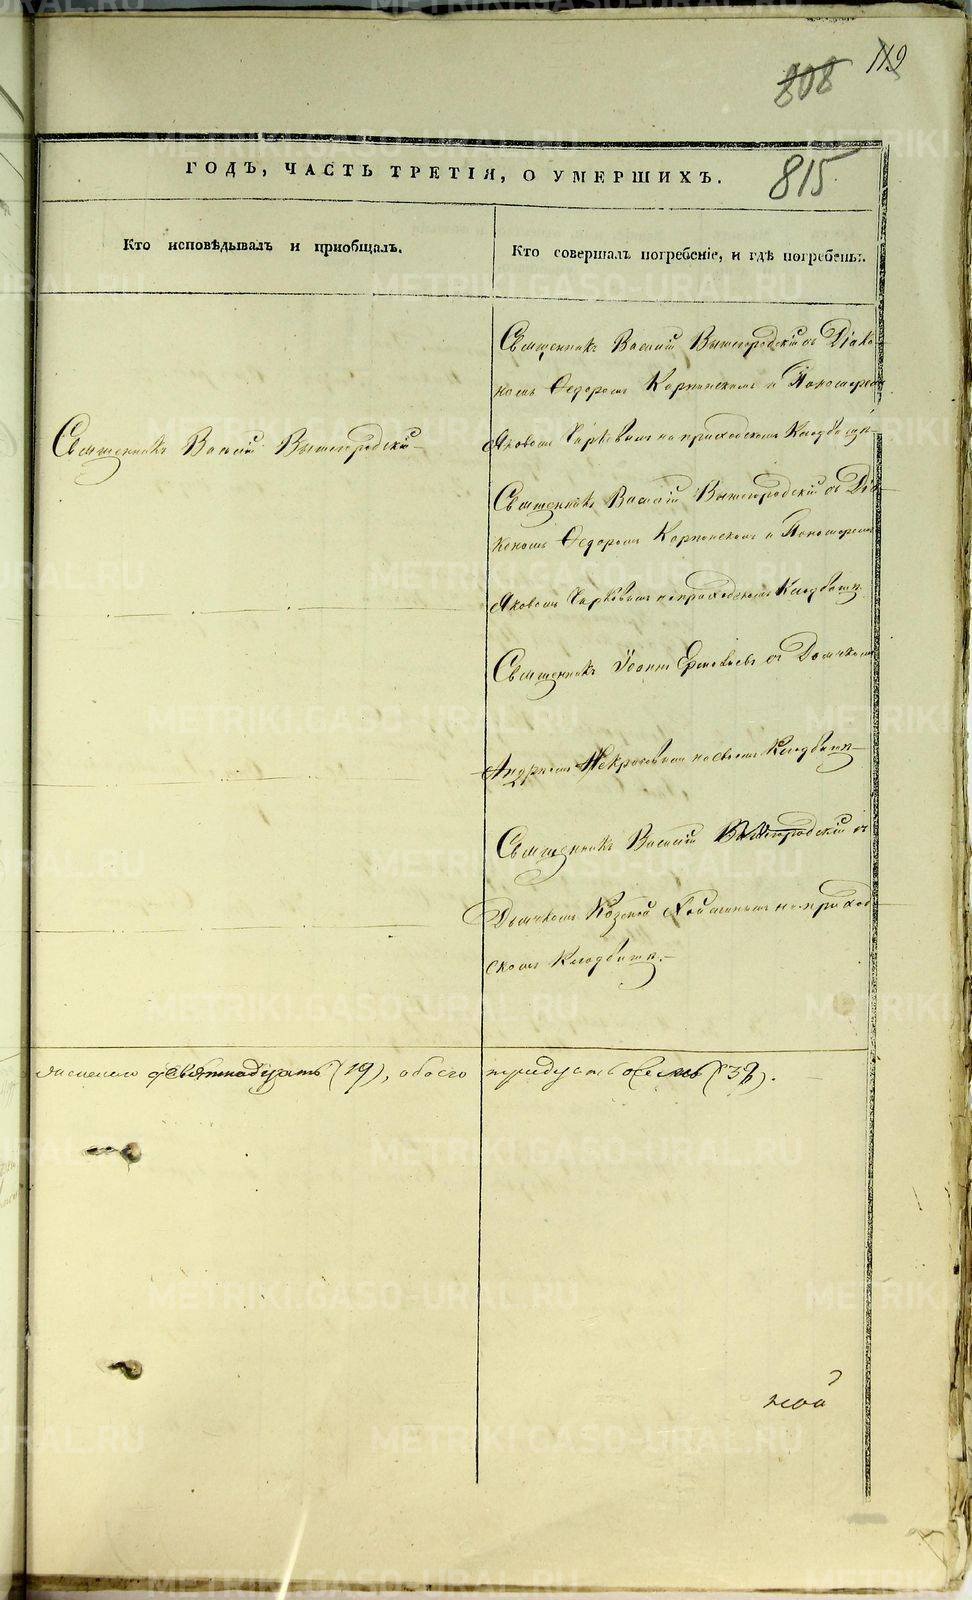 119
808
815
ГОДЪ, ЧАСТЬ ТРЕТІЯ, О УМЕРШИХЪ.
Кто исповѣдывалъ и приобщалъ.
Кто совершалъ погребеніе, и гдѣ погребены.
Священникъ Василій Вышегородскій
Священникъ Василій Вышегородскій съ Діако-
номъ Ѳедоромъ Карпинскимъ и Пономаремъ
Яковомъ на приходскомъ Кладбищѣ
Священникъ Василій Вышегородскій съ Діа-
кономъ Ѳедоромъ Карпинскимъ и Пономаремъ
Яковомъ на приходскомъ Кладбищѣ.
Священникъ Іоаннъ съ Дьячкомъ
Андреемъ Некрасовымъ на своемъ Кладбищѣ
Священникъ Василій Вышегородскій съ
Дьячкомъ Козмой на приход-
скомъ Кладбищѣ.
девятнадцать (19), обоего
тридцать восемь (38).
METRIKI.GASO-URAL.RU